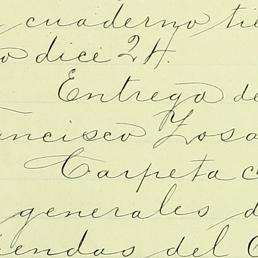 cuaderno tie
o dice 24.
Entrega de
ancisco Losa
Carpeta c
generales d
endas del C